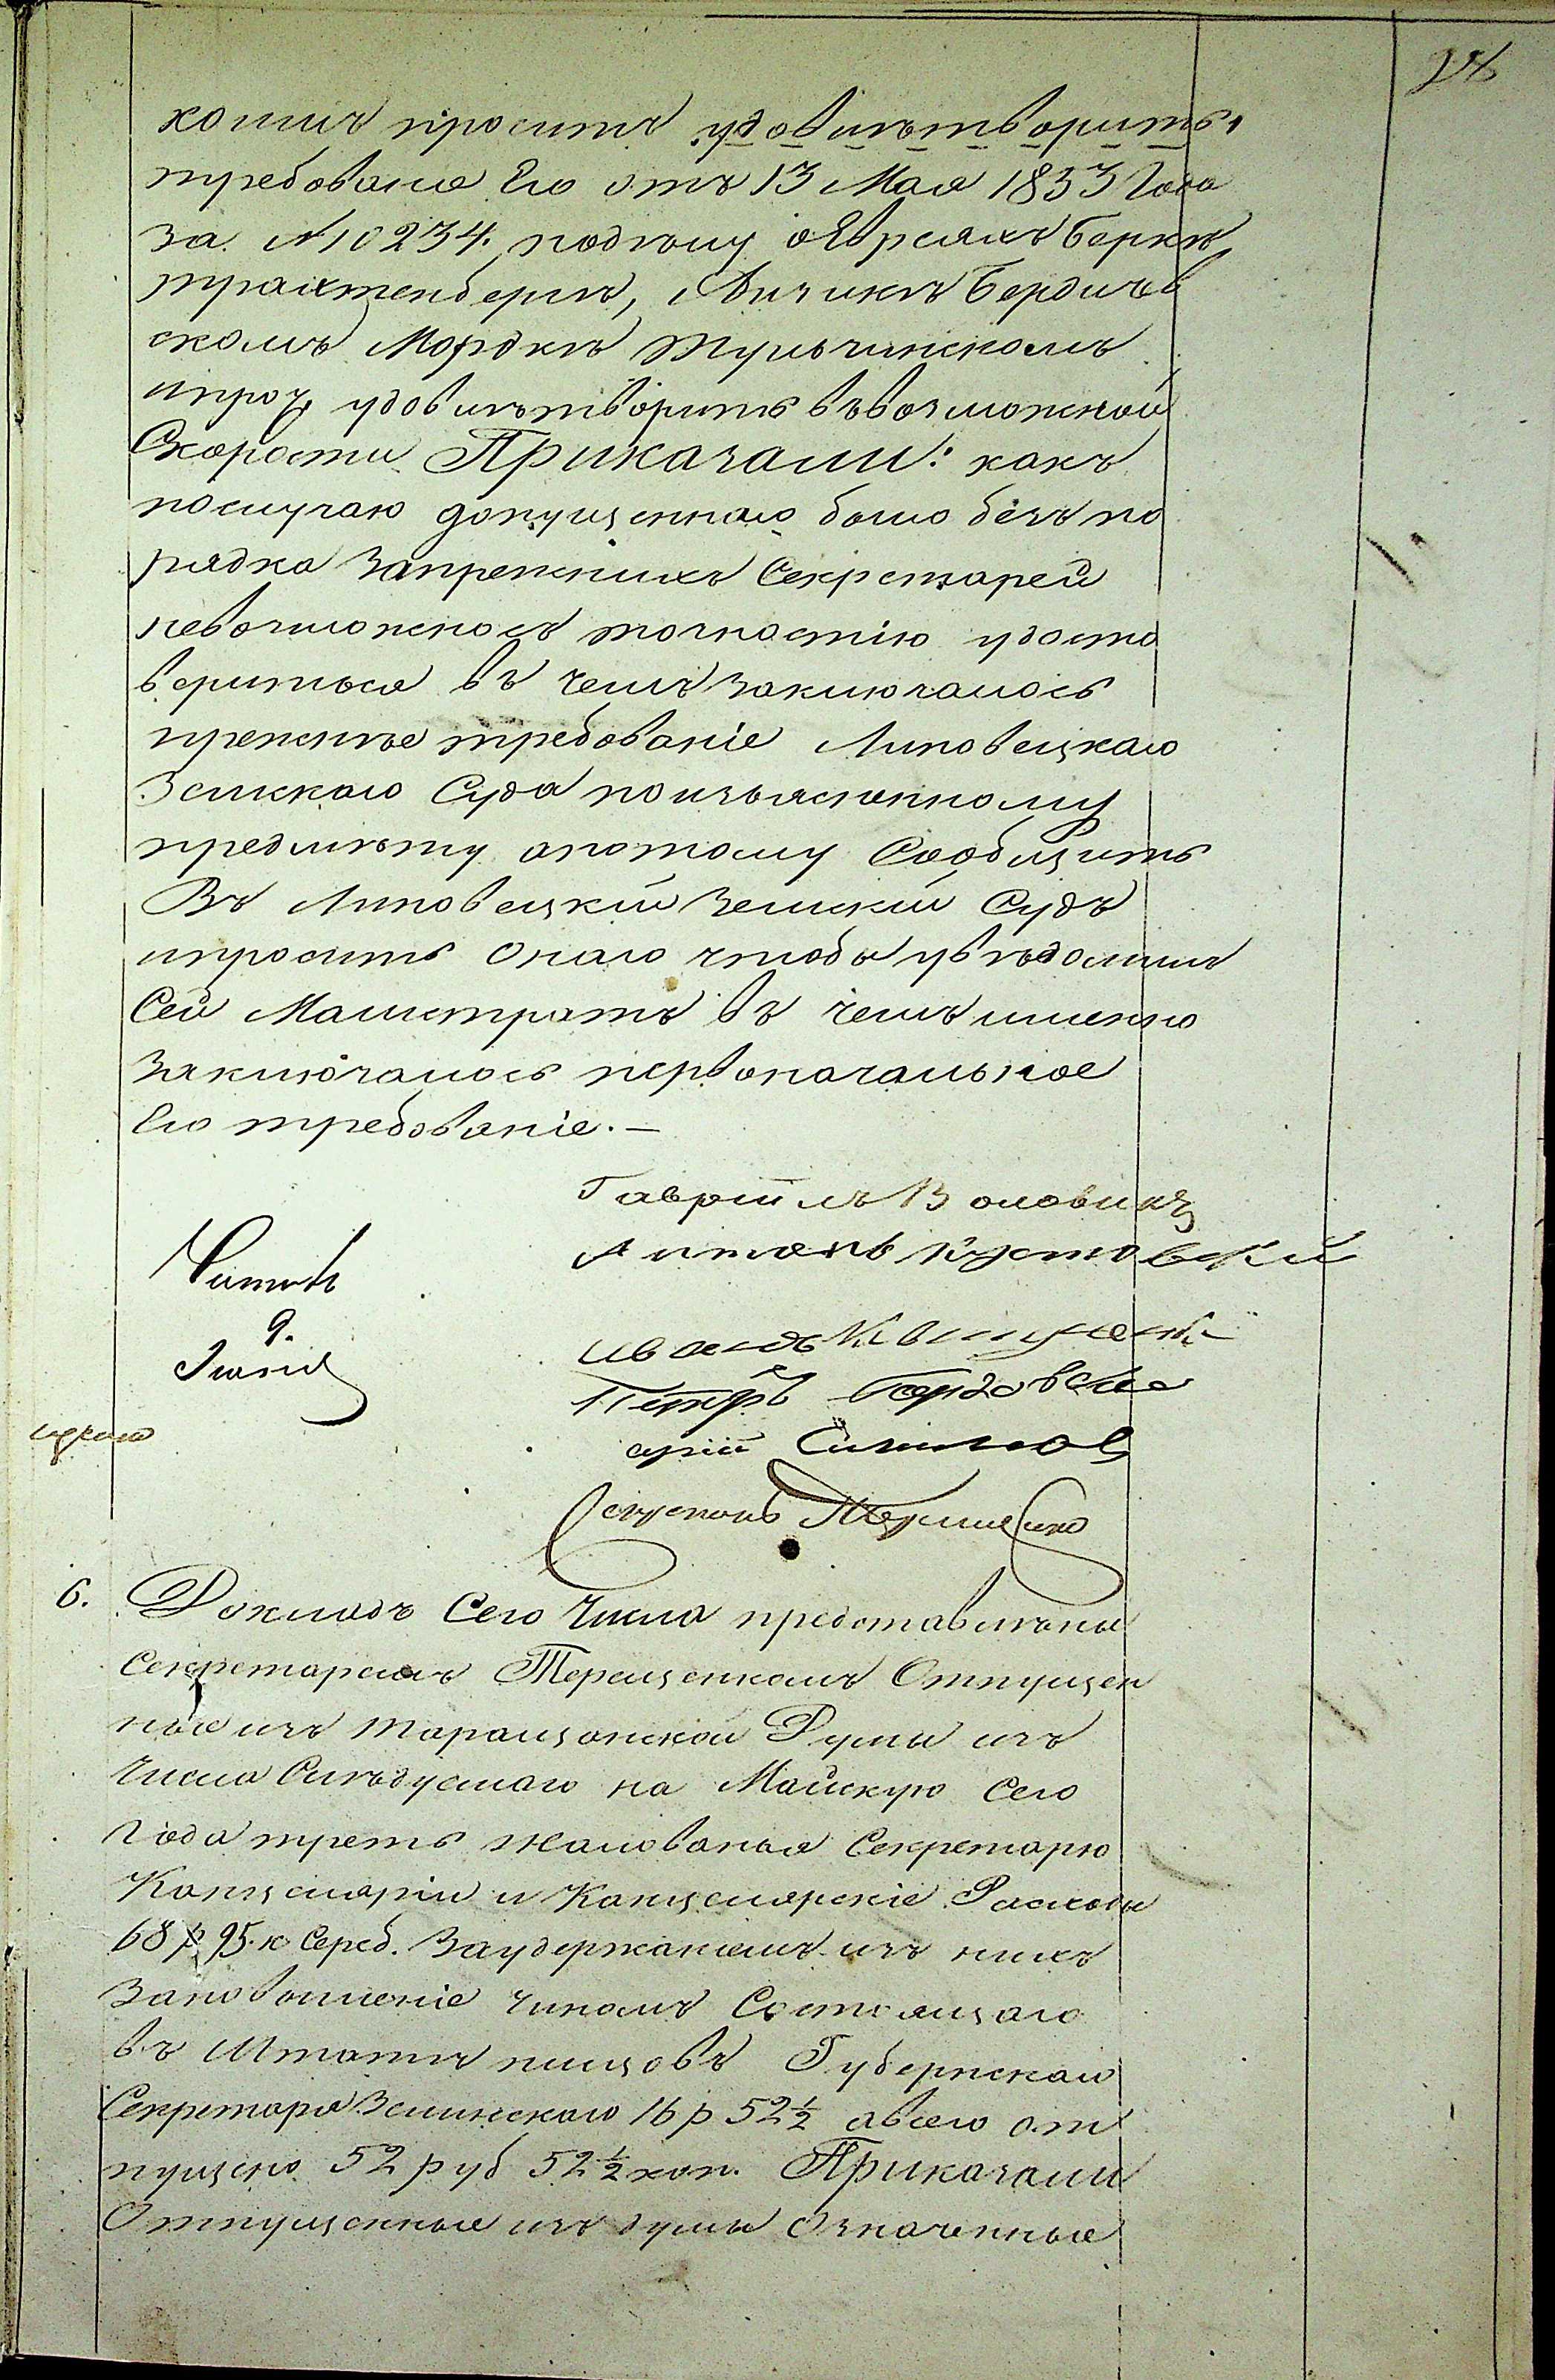 коимъ проситъ удовлѣтворить
требованіе Его отъ 13 Мая 1833 Года
за N 10234. подѣлу оЕвреяхъ Беркѣ
трахтенбергѣ, Айзикѣ Бердичев
скомъ Мордкѣ Тульчинскомъ
ипроч удовлѣтворить въвозможной
Скорости Приказали: какъ
послучаю допущеннаго было безъ по
рядка запрежнихъ Секретарей
невозможносъ точностію удосто
вериться въ чемъ заключалось
прежнѣе требованіе Липовецкаго
Земскаго Суда поизъясненному
предмѣту апотому Сообщить
Въ Липовецкій Земский Судъ
ипросить Онаго чтобы увѣдомилъ
Сей Магистратъ въ чемъ именно
заключалось первоначальное
Его требованіе.—
24
Гаврiилъ Воловикъ
Антонъ Кустовский
Читалъ
9.
Іюня
Петръ
Терещенко
6. Докладъ Сего Числа представлѣны
Секретаремъ Терещенкомъ Отпущен
ные изъ таращанской Думы изъ
Числа Слѣдуемаго на Майскую Сего
Года треть жалованья Секретарю
Канцеляріи и Канцелярскіе Расходы
68 р 95. к Сереб. Заудержаніемъ изъ нихъ
Заповышеніе чиномъ Состоящаго
въ Штатѣ писцовъ Губернскаго
Секретаря Зелинскаго 16 р 52 1/2 авсего от
пущено 52 руб 52 1/2 коп. Приказали
Отпущенные изъ думы Означенные